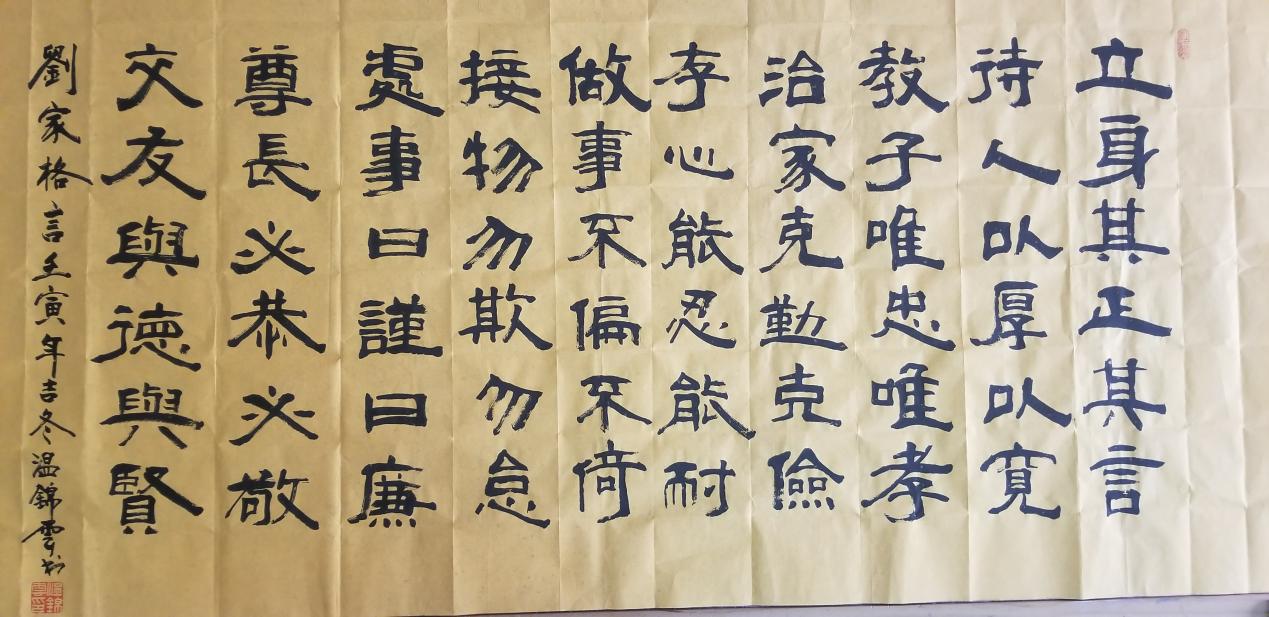 立身其正其言
待人以厚以寬
教子唯忠唯孝
治家克勤克儉
存心能忍能耐
做事不偏不倚
接物勿欺勿怠
處事曰謹曰廉
尊長必恭必敬
交友與德與賢
劉家格言壬寅年吉冬温錦雲书